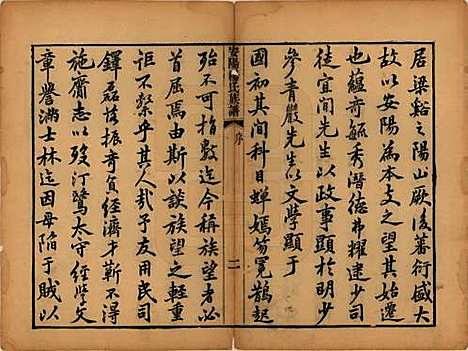 居梁谿之陽山厥後蕃衍盛大
故以安陽為本支之望其始遷
也蘊奇毓秀潛德弗耀逮少司
徒宜間先生以政事顯於明少
參青巖先生以文學顯于
國初其間科目蟬嫣簪冕鵲起
安陽 氏族譜 序 二
殆不可指數迄今稱族望者必
首屈焉由斯以談族望之輕重
詎不繫乎其人哉予友用民司
鐸磊落振奇負經濟才靳不得
施齎志以歿汀鷺太守經學文
章譽滿士林迄因母陷于賊以